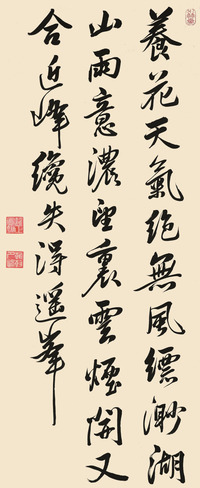 養花天氣絶無風縹渺湖
山雨意濃望裏雲煙開又
合近峰纔失得遥峯